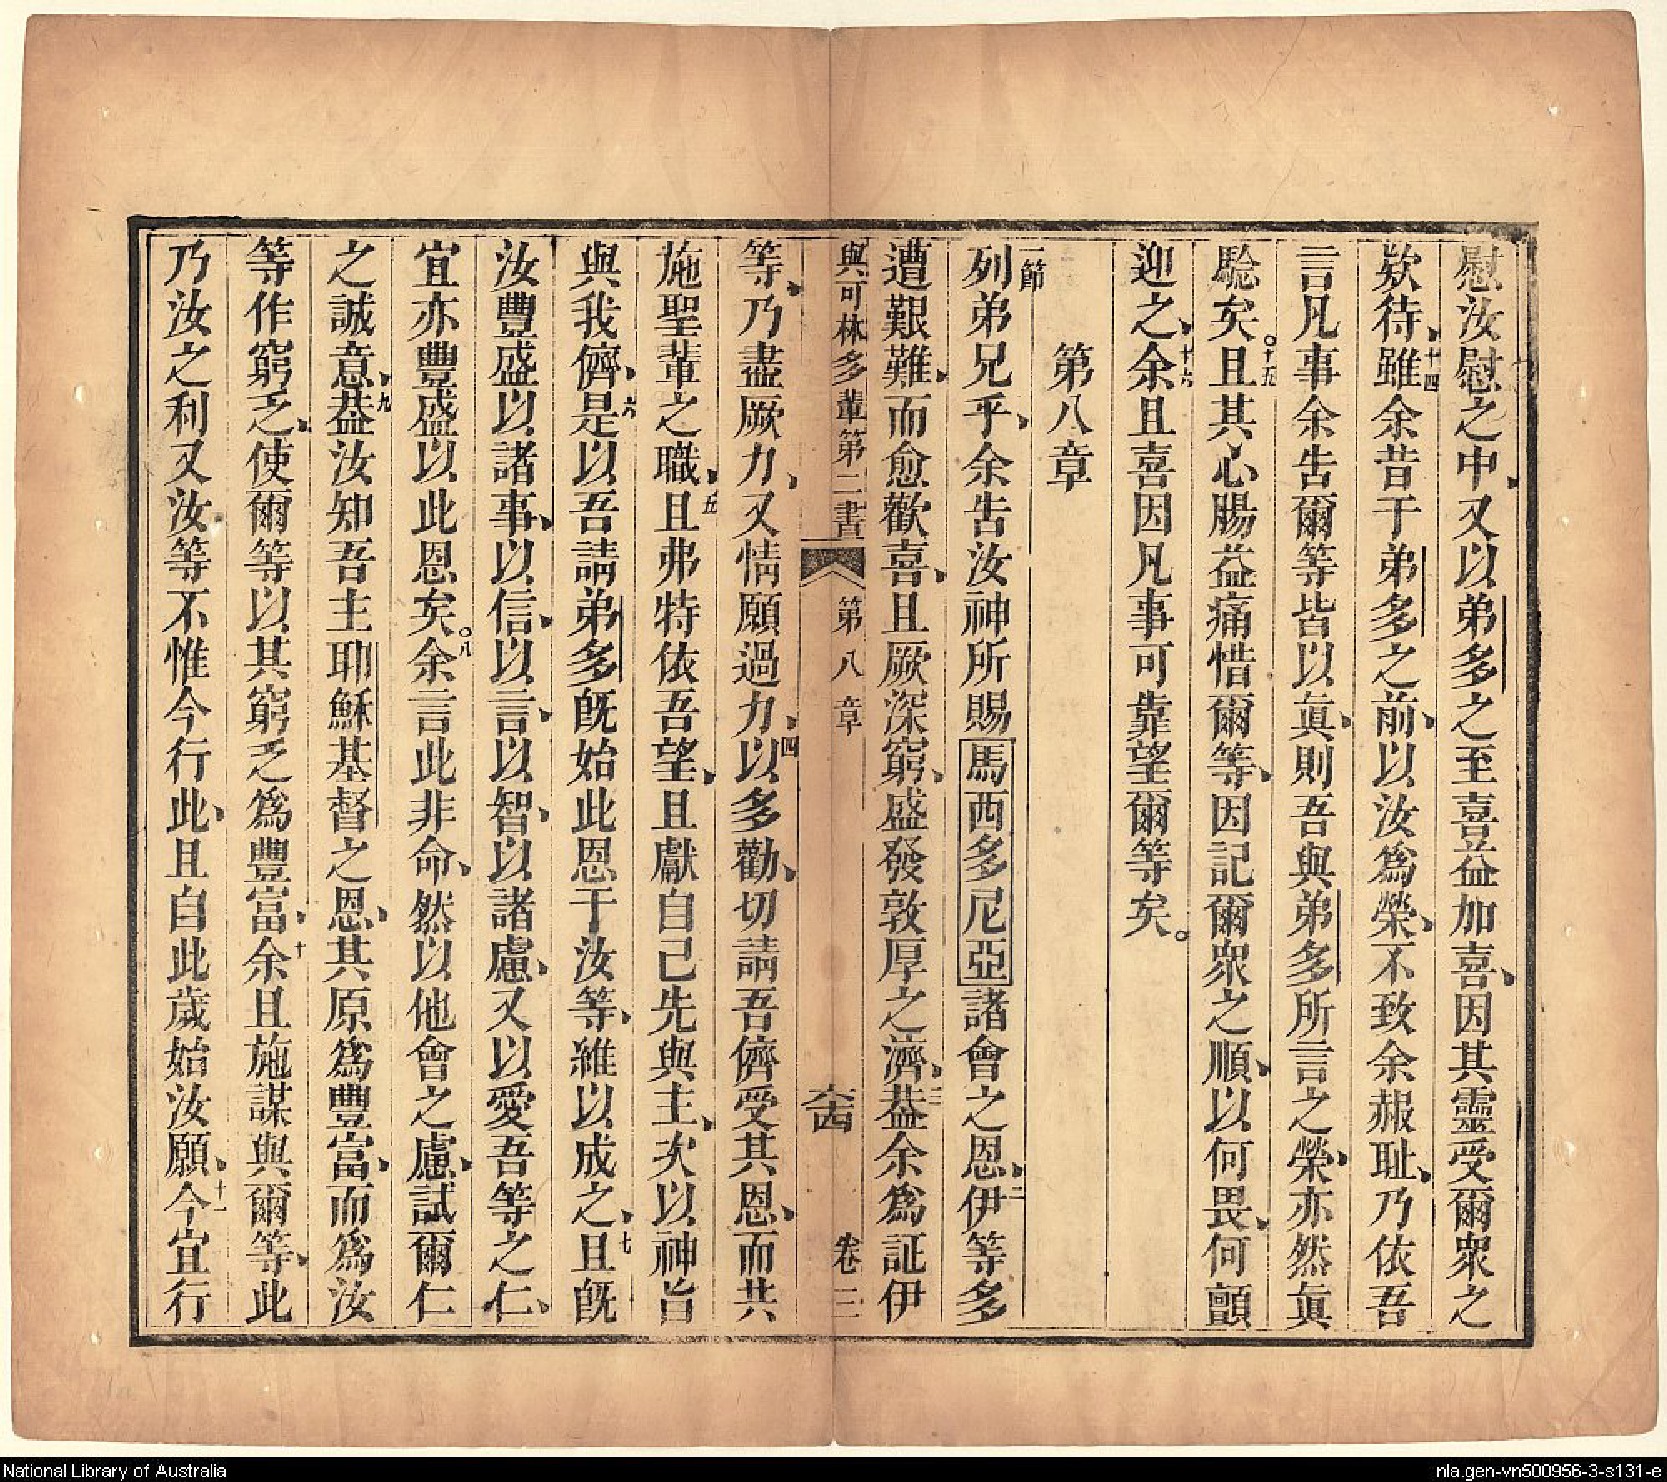 慰汝慰之中、又以弟多之至喜益加喜、因其靈受爾衆之
欵待、十四雖余昔于弟多之前、以汝爲榮、不致余赧耻、乃依吾
言凡事余吿爾等皆以眞、則吾與弟多所言之榮、亦然眞
騐矣。十五且其心腸益痛惜爾等、因記爾衆之順、以何畏、何顫
迎之、十六余且喜因凡事可靠望爾等矣。
第八章
一節列弟兄乎、余吿汝神所賜馬西多尼亞諸會之恩、二伊等多
遭艱難、而愈歡喜、且厥深窮、盛發敦厚之濟、三葢余爲証伊
與可林多輩第二書 第八章 六四 卷二
等、乃盡厥力、又情願過力、四以多勸、切請吾儕受其恩、而共
施聖輩之職、五且弗特依吾望、且獻自己先與主、次以神旨
與我儕、六是以吾請弟多旣始此恩于汝等、維以成之、七且旣
汝豐盛以諸事、以信、以言、以智、以諸慮、又以愛吾等之仁、
宜亦豐盛以此恩矣。八余言此非命、然以他會之慮、試爾仁
之誠意、九葢汝知吾主耶穌基督之恩、其原爲豐富、而爲汝
等作窮乏、使爾等以其窮乏爲豐富、十余且施謀與爾等、此
乃汝之利又汝等不惟今行此、且自此歲始汝願、十一今宜行
National Library of Australia
nla.gen-vn500956-3-s131-e